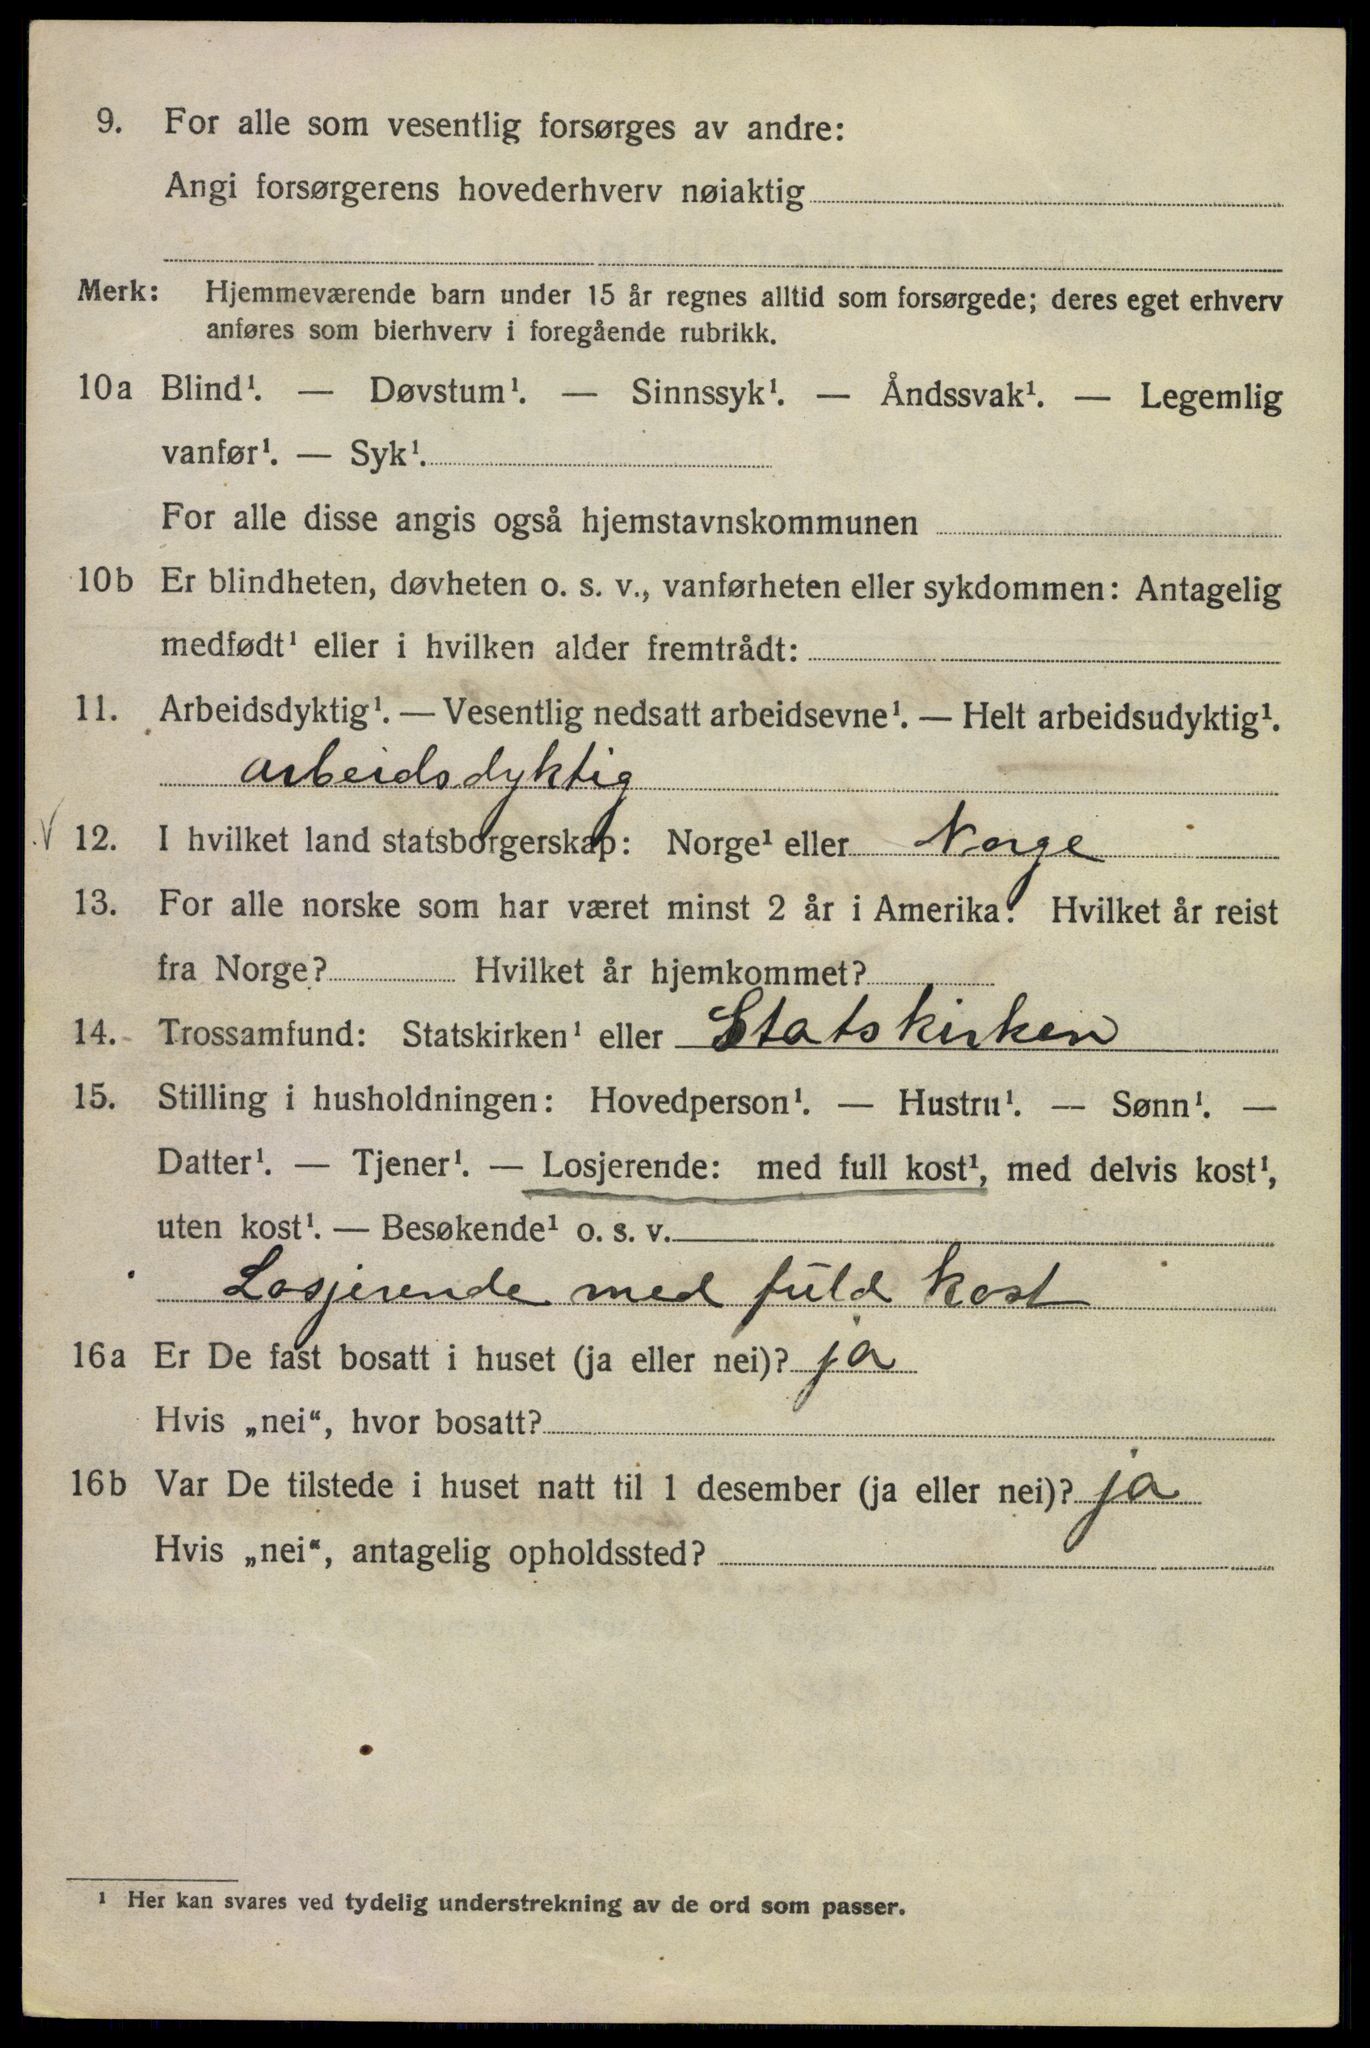 9. For alle som vesentlig forsørges av andre:
Angi forsørgerens hovederhverv nøiaktig
Merk: Hjemmeværende barn under 15 år regnes alltid som forsørgede; deres eget erhverv
anføres som bierhverv i foregående rubrikk.
10a Blind¹. — Døvstum¹. — Sinnssyk¹. — Åndssvak¹. — Legemlig
vanfør¹. — Syk¹.
For alle disse angis også hjemstavnskommunen
10b Er blindheten, døvheten o. s. v., vanførheten eller sykdommen: Antagelig
medfødt¹ eller i hvilken alder fremtrådt:
11. Arbeidsdyktig¹. — Vesentlig nedsatt arbeidsevne¹. — Helt arbeidsudyktig¹.
arbeidsdyktig
V 12. I hvilket land statsborgerskap: Norge¹ eller Norge
13. For alle norske som har været minst 2 år i Amerika: Hvilket år reist
fra Norge? Hvilket år hjemkommet?
14. Trossamfund: Statskirken¹ eller Statskirken
15. Stilling i husholdningen: Hovedperson¹. — Hustru¹. — Sønn¹. —
Datter¹. — Tjener¹. — Losjerende: med full kost¹, med delvis kost¹,
uten kost¹. — Besøkende¹ o. s. v.
Losjerende med fuld kost
16a Er De fast bosatt i huset (ja eller nei)? ja
Hvis „nei“, hvor bosatt?
16b Var De tilstede i huset natt til 1 desember (ja eller nei)? ja
Hvis „nei“, antagelig opholdssted?
¹ Her kan svares ved tydelig understrekning av de ord som passer.